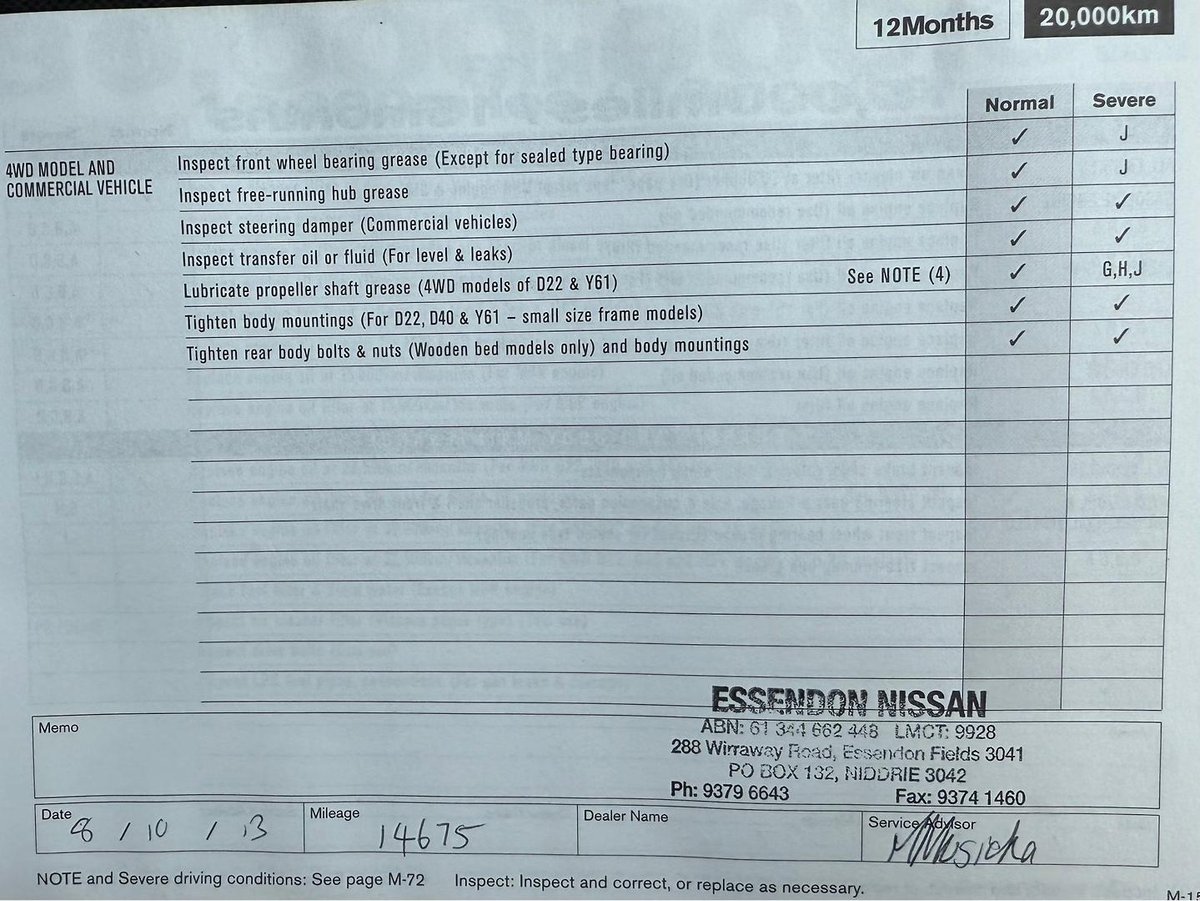 12Months 20,000km
Normal Severe
4WD MODEL AND COMMERCIAL VEHICLE
Inspect front wheel bearing grease (Except for sealed type bearing) ✓ J
Inspect free-running hub grease ✓ J
Inspect steering damper (Commercial vehicles) ✓ ✓
Inspect transfer oil or fluid (For level & leaks) ✓ ✓
Lubricate propeller shaft grease (4WD models of D22 & Y61) See NOTE (4) ✓ G,H,J
Tighten body mountings (For D22, D40 & Y61 – small size frame models) ✓ ✓
Tighten rear body bolts & nuts (Wooden bed models only) and body mountings ✓ ✓
ESSENDON NISSAN
Memo
ABN: 61 344 662 448 LMCT: 9928
288 Wirraway Road, Essendon Fields 3041
PO BOX 132, NIDDRIE 3042
Ph: 9379 6643 Fax: 9374 1460
Date 8 / 10 / 13
Mileage 14675
Dealer Name
Service Advisor
NOTE and Severe driving conditions: See page M-72 Inspect: Inspect and correct, or replace as necessary.